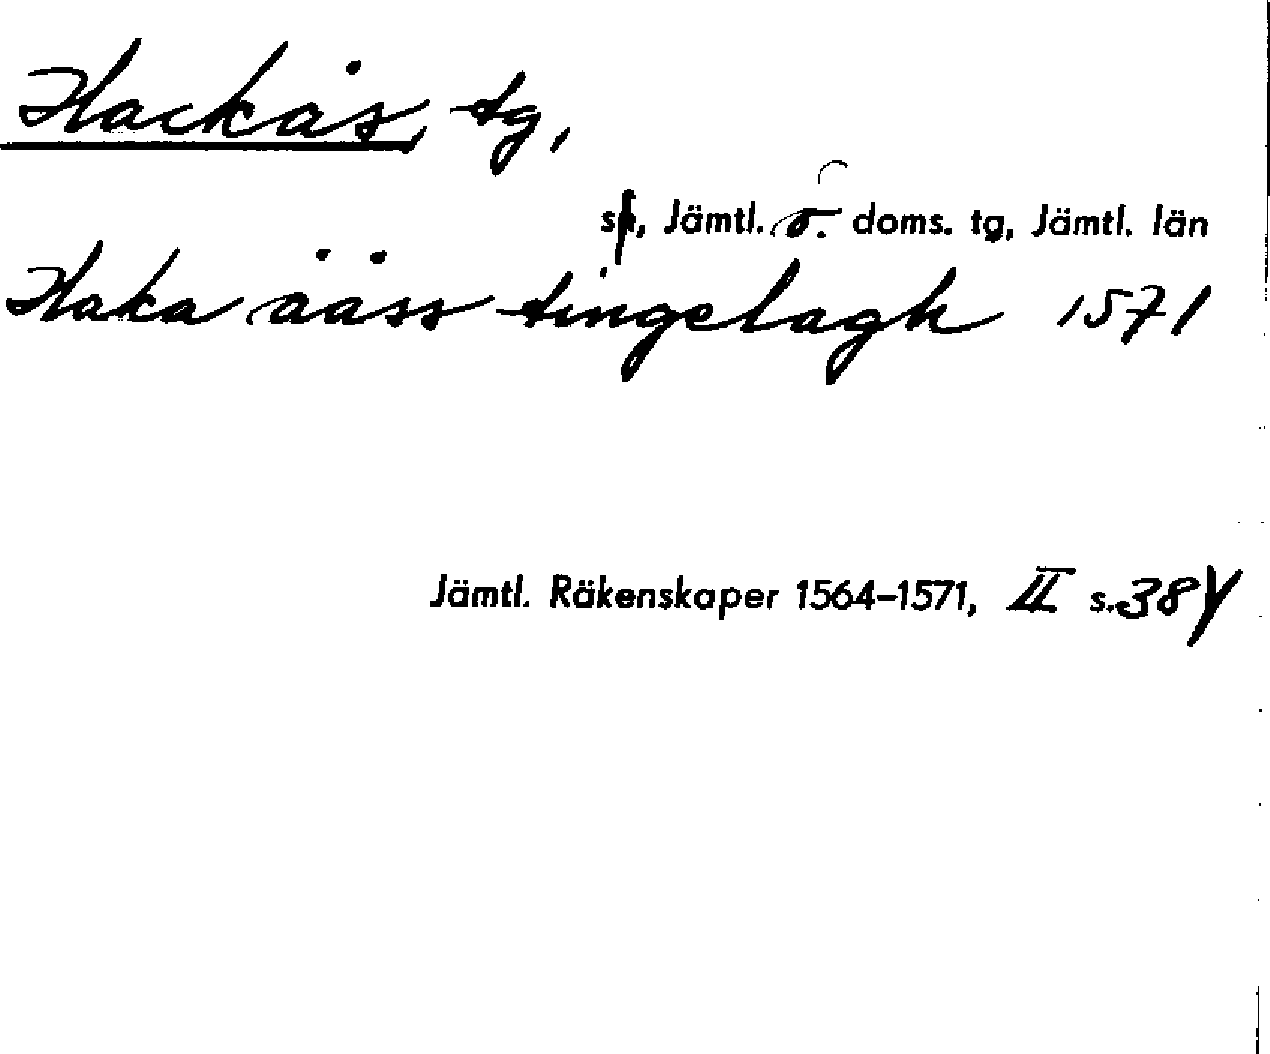 Hackås, tg,
sn, Jämtl. ö. doms. tg, Jämtl. län
Haka ååss tingelagh 1571
Jämtl. Räkenskaper 1564–1571, II s. 38